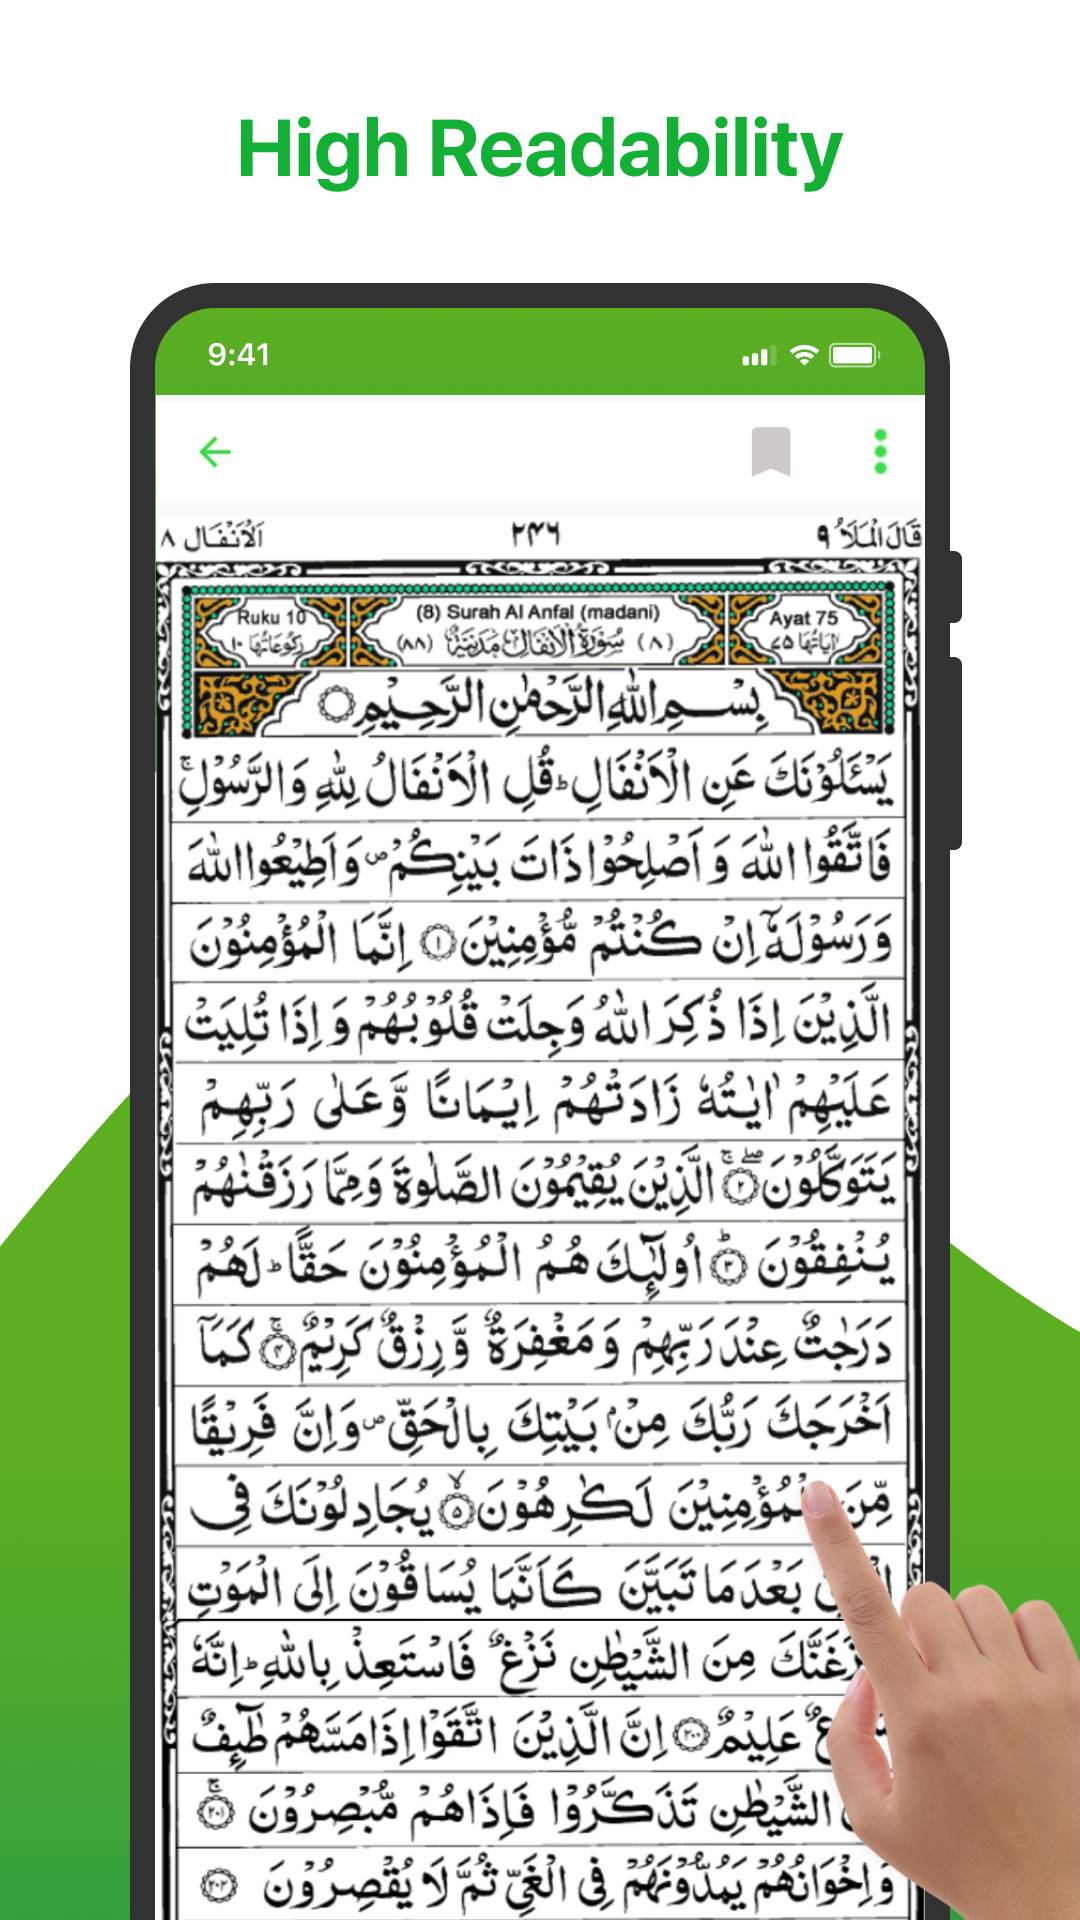 High Readability
9:41
قَالَ الْمَلَاُ ٩
٢٤٦
اَلْاَنْفَال ٨
Ayat 75
(8) Surah Al Anfal (madani)
Ruku 10
اٰيَاتُهَا ٧٥
(٨) سُوْرَةُ الْاَنْفَالِ مَدَنِيَّةٌ (٨٨)
رُكُوْعَاتُهَا ١٠
بِسْمِ اللّٰهِ الرَّحْمٰنِ الرَّحِيْمِ
يَسْـَٔلُوْنَكَ عَنِ الْاَنْفَالِ ؕ قُلِ الْاَنْفَالُ لِلّٰهِ وَالرَّسُوْلِ ۚ
فَاتَّقُوا اللّٰهَ وَ اَصْلِحُوْا ذَاتَ بَيْنِكُمْ ۪ وَ اَطِيْعُوا اللّٰهَ
وَ رَسُوْلَهٗۤ اِنْ كُنْتُمْ مُّؤْمِنِيْنَ ١ اِنَّمَا الْمُؤْمِنُوْنَ
الَّذِيْنَ اِذَا ذُكِرَ اللّٰهُ وَجِلَتْ قُلُوْبُهُمْ وَ اِذَا تُلِيَتْ
عَلَيْهِمْ اٰيٰتُهٗ زَادَتْهُمْ اِيْمَانًا وَّ عَلٰى رَبِّهِمْ
يَتَوَكَّلُوْنَ ۖۚ ٢ الَّذِيْنَ يُقِيْمُوْنَ الصَّلٰوةَ وَ مِمَّا رَزَقْنٰهُمْ
يُنْفِقُوْنَ ؕ ٣ اُولٰٓئِكَ هُمُ الْمُؤْمِنُوْنَ حَقًّا ؕ لَهُمْ
دَرَجٰتٌ عِنْدَ رَبِّهِمْ وَ مَغْفِرَةٌ وَّ رِزْقٌ كَرِيْمٌ ۚ ٤ كَمَاۤ
اَخْرَجَكَ رَبُّكَ مِنْۢ بَيْتِكَ بِالْحَقِّ ۪ وَ اِنَّ فَرِيْقًا
مِّنَ الْمُؤْمِنِيْنَ لَكٰرِهُوْنَ ۙ ٥ يُجَادِلُوْنَكَ فِى
بَعْدَ مَا تَبَيَّنَ كَاَنَّمَا يُسَاقُوْنَ اِلَى الْمَوْتِ
مِنَ الشَّيْطٰنِ نَزْغٌ فَاسْتَعِذْ بِاللّٰهِ ؕ اِنَّهٗ
عَلِيْمٌ ٢٠٠ اِنَّ الَّذِيْنَ اتَّقَوْا اِذَا مَسَّهُمْ طٰٓئِفٌ
الشَّيْطٰنِ تَذَكَّرُوْا فَاِذَا هُمْ مُّبْصِرُوْنَ ۚ ٢٠١
وَ اِخْوَانُهُمْ يَمُدُّوْنَهُمْ فِى الْغَىِّ ثُمَّ لَا يُقْصِرُوْنَ ٢٠٢